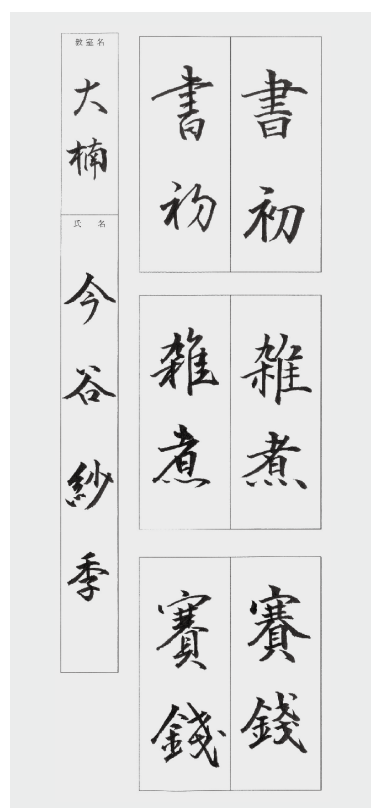 書初
書初
雑煮
雑煮
賽錢
賽錢
教室名
大楠
氏名
今谷紗季